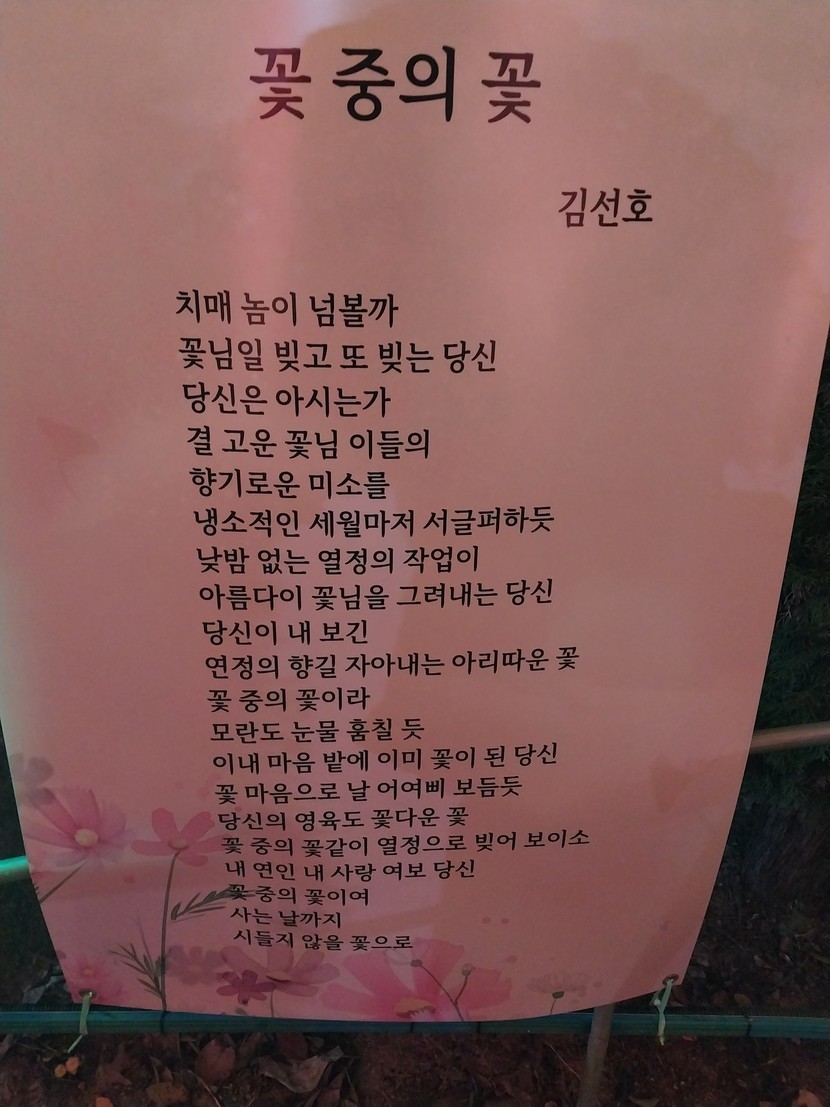 꽃 중의 꽃
김선호
치매 놈이 넘볼까
꽃님일 빚고 또 빚는 당신
당신은 아시는가
결 고운 꽃님 이들의
향기로운 미소를
냉소적인 세월마저 서글퍼하듯
낮밤 없는 열정의 작업이
아름다이 꽃님을 그려내는 당신
당신이 내 보긴
연정의 향길 자아내는 아리따운 꽃
꽃 중의 꽃이라
모란도 눈물 훔칠 듯
이내 마음 밭에 이미 꽃이 된 당신
꽃 마음으로 날 어여삐 보듬듯
당신의 영육도 꽃다운 꽃
꽃 중의 꽃같이 열정으로 빚어 보이소
내 연인 내 사랑 여보 당신
꽃 중의 꽃이여
사는 날까지
시들지 않을 꽃으로